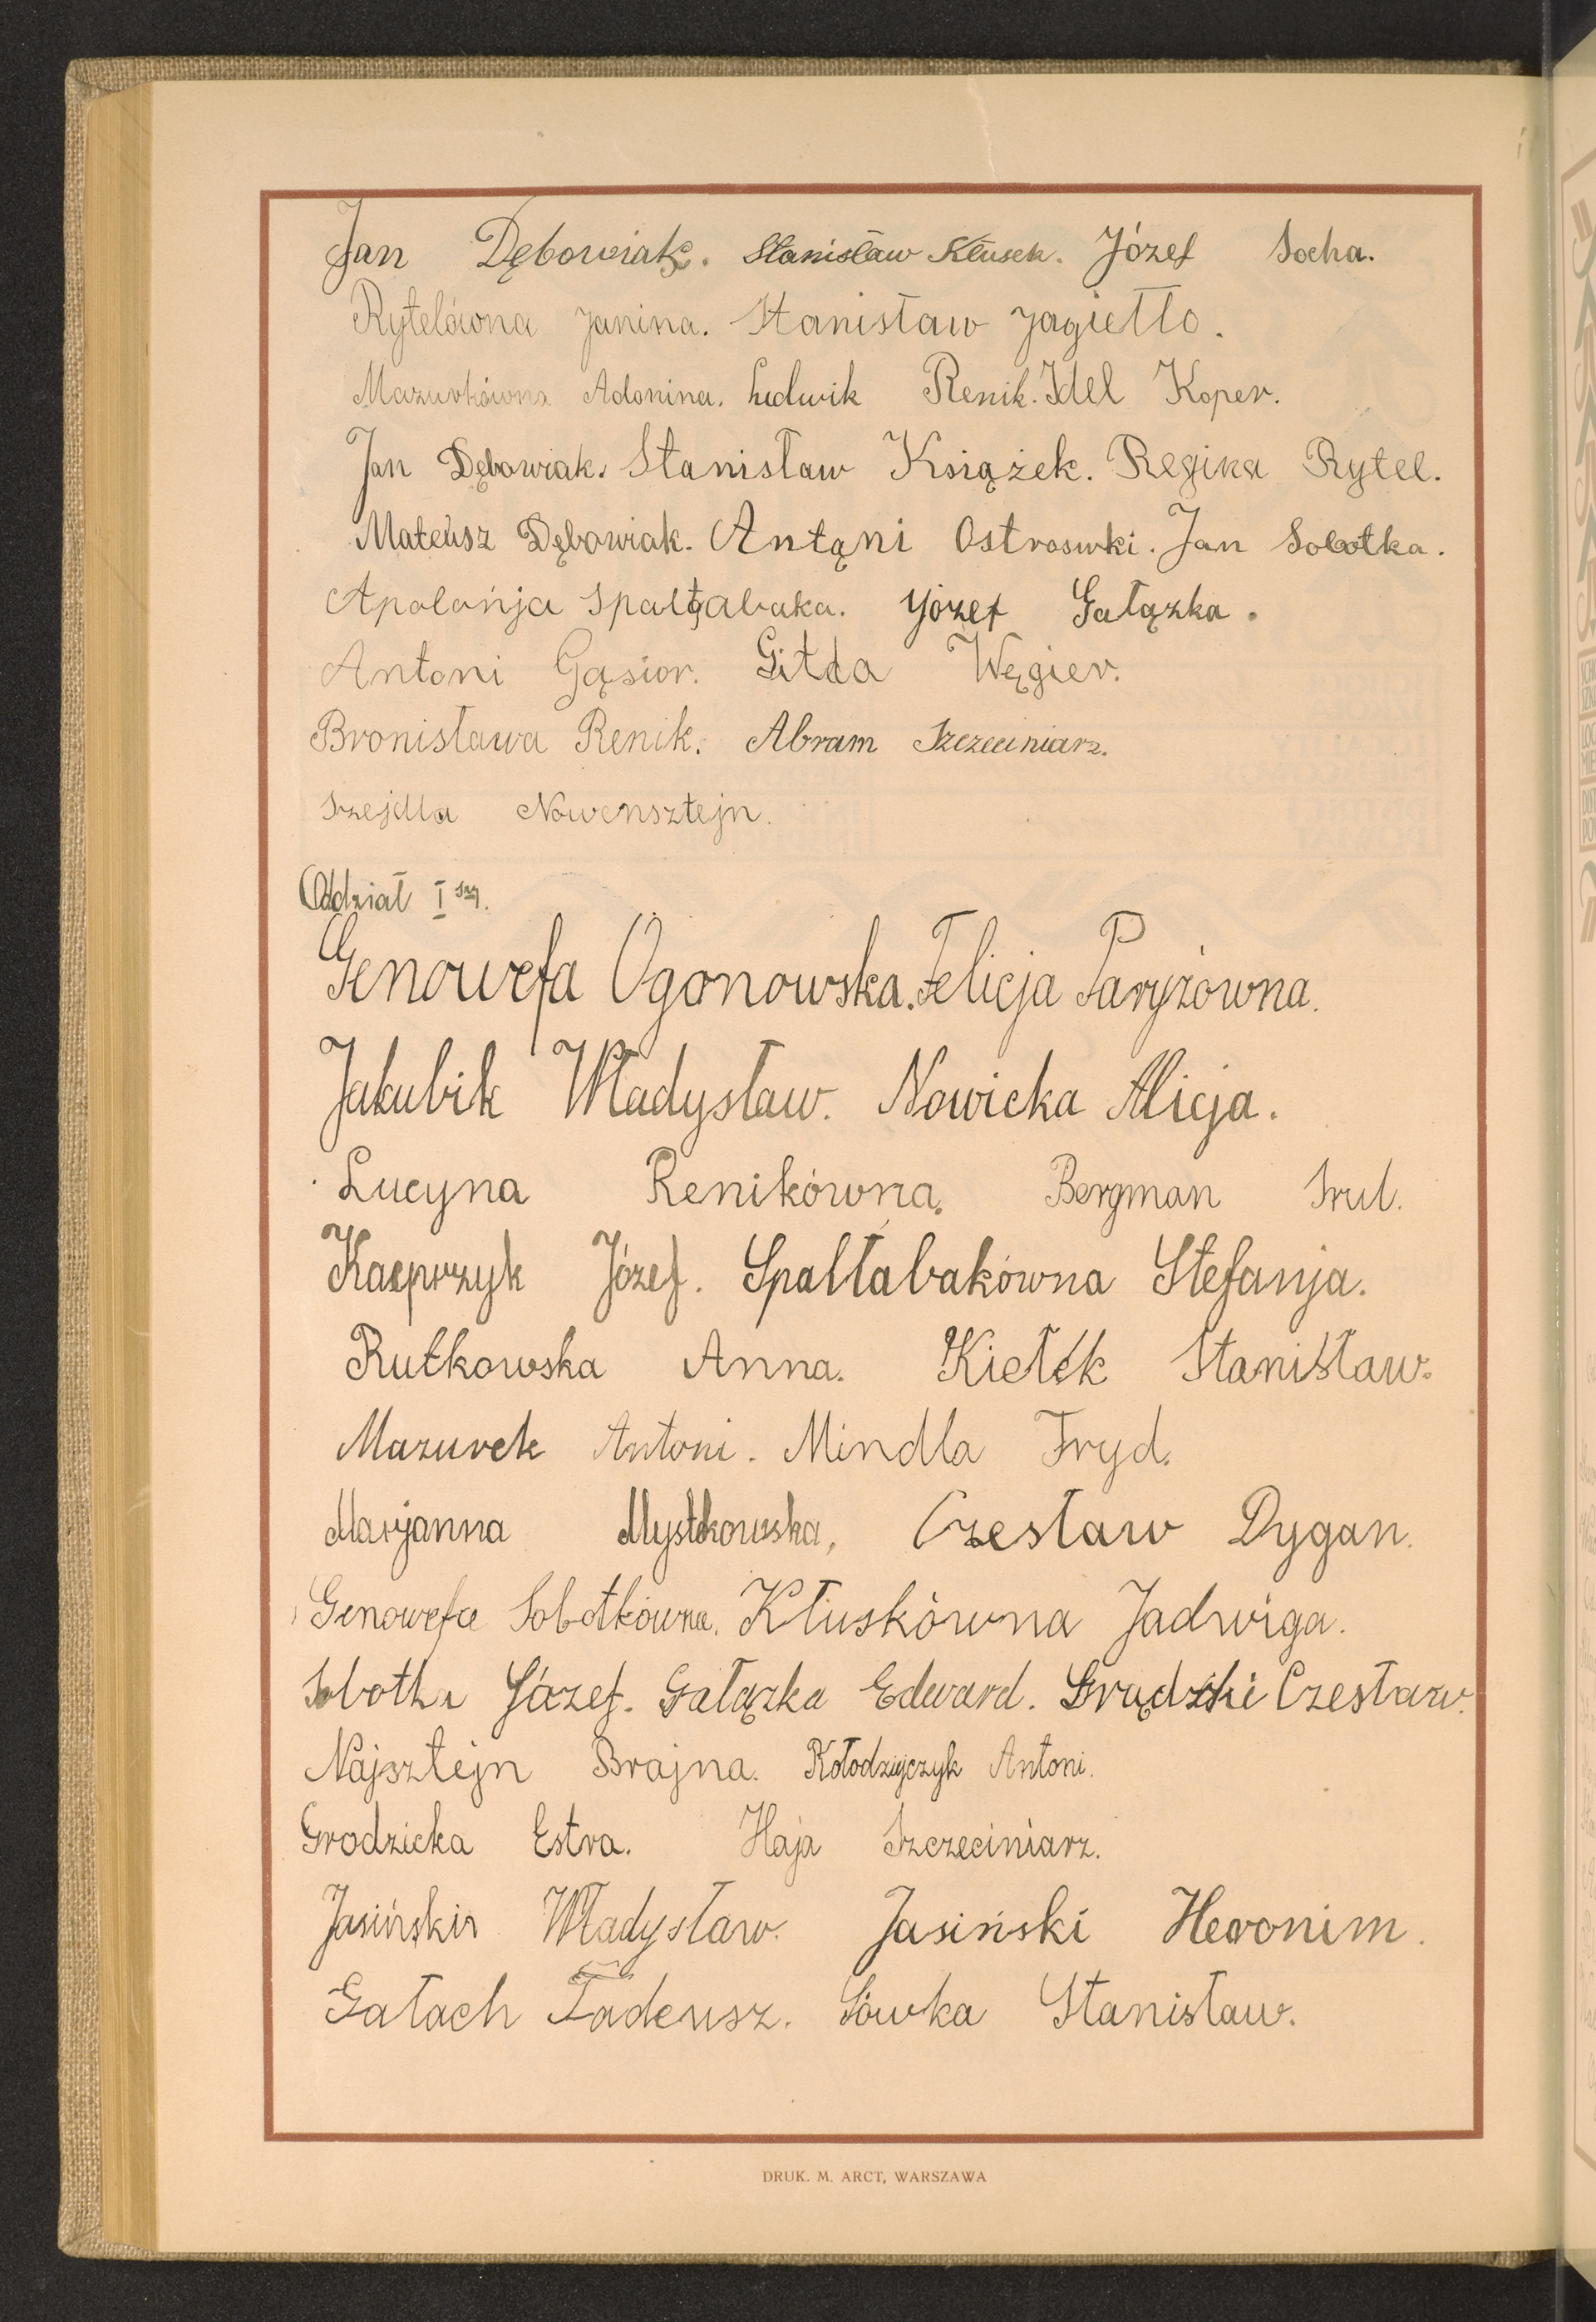 Jan Dębowiak. Stanisław Kłusek. Józef Socha.
Rytelówna Janina. Stanisław Jagiełło.
Mazurkówna Adonina. Ludwik Renik. Idel Koper.
Jan Dębowiak. Stanisław Książek. Regina Rytel.
Mateusz Dębowiak. Antąni Ostroswki. Jan Sobotka.
Apolońja Spałtabaka. Józef Gałązka.
Antoni Gąsior. Gitda Węgier.
Bronisława Renik. Abram Szczeciniarz.
Szejdla Nowensztejn.
Oddział I szy.
Genowefa Ogonowska. Felicja Paryżówna.
Jakubik Władysław. Nowicka Alicja.
Lucyna Renikówna. Bergman Srul.
Kacprzyk Józef. Spałtabakówna Stefanja.
Rutkowska Anna. Kiełek Stanisław.
Mazurek Antoni. Mindla Fryd.
Marjanna Mystkowska, Czesław Dygan.
Genowefa Sobotkówna. Kłuskówna Jadwiga.
Sobotka Józef. Gałązka Edward. Grądzki Czesław.
Najsztejn Brajna. Kołodziejczyk Antoni.
Grodzicka Estra. Haja Szczeciniarz.
Jasiński Władysław. Jasiński Heronim.
Gałach Tadeusz. Sówka Stanisław.
DRUK. M. ARCT, WARSZAWA